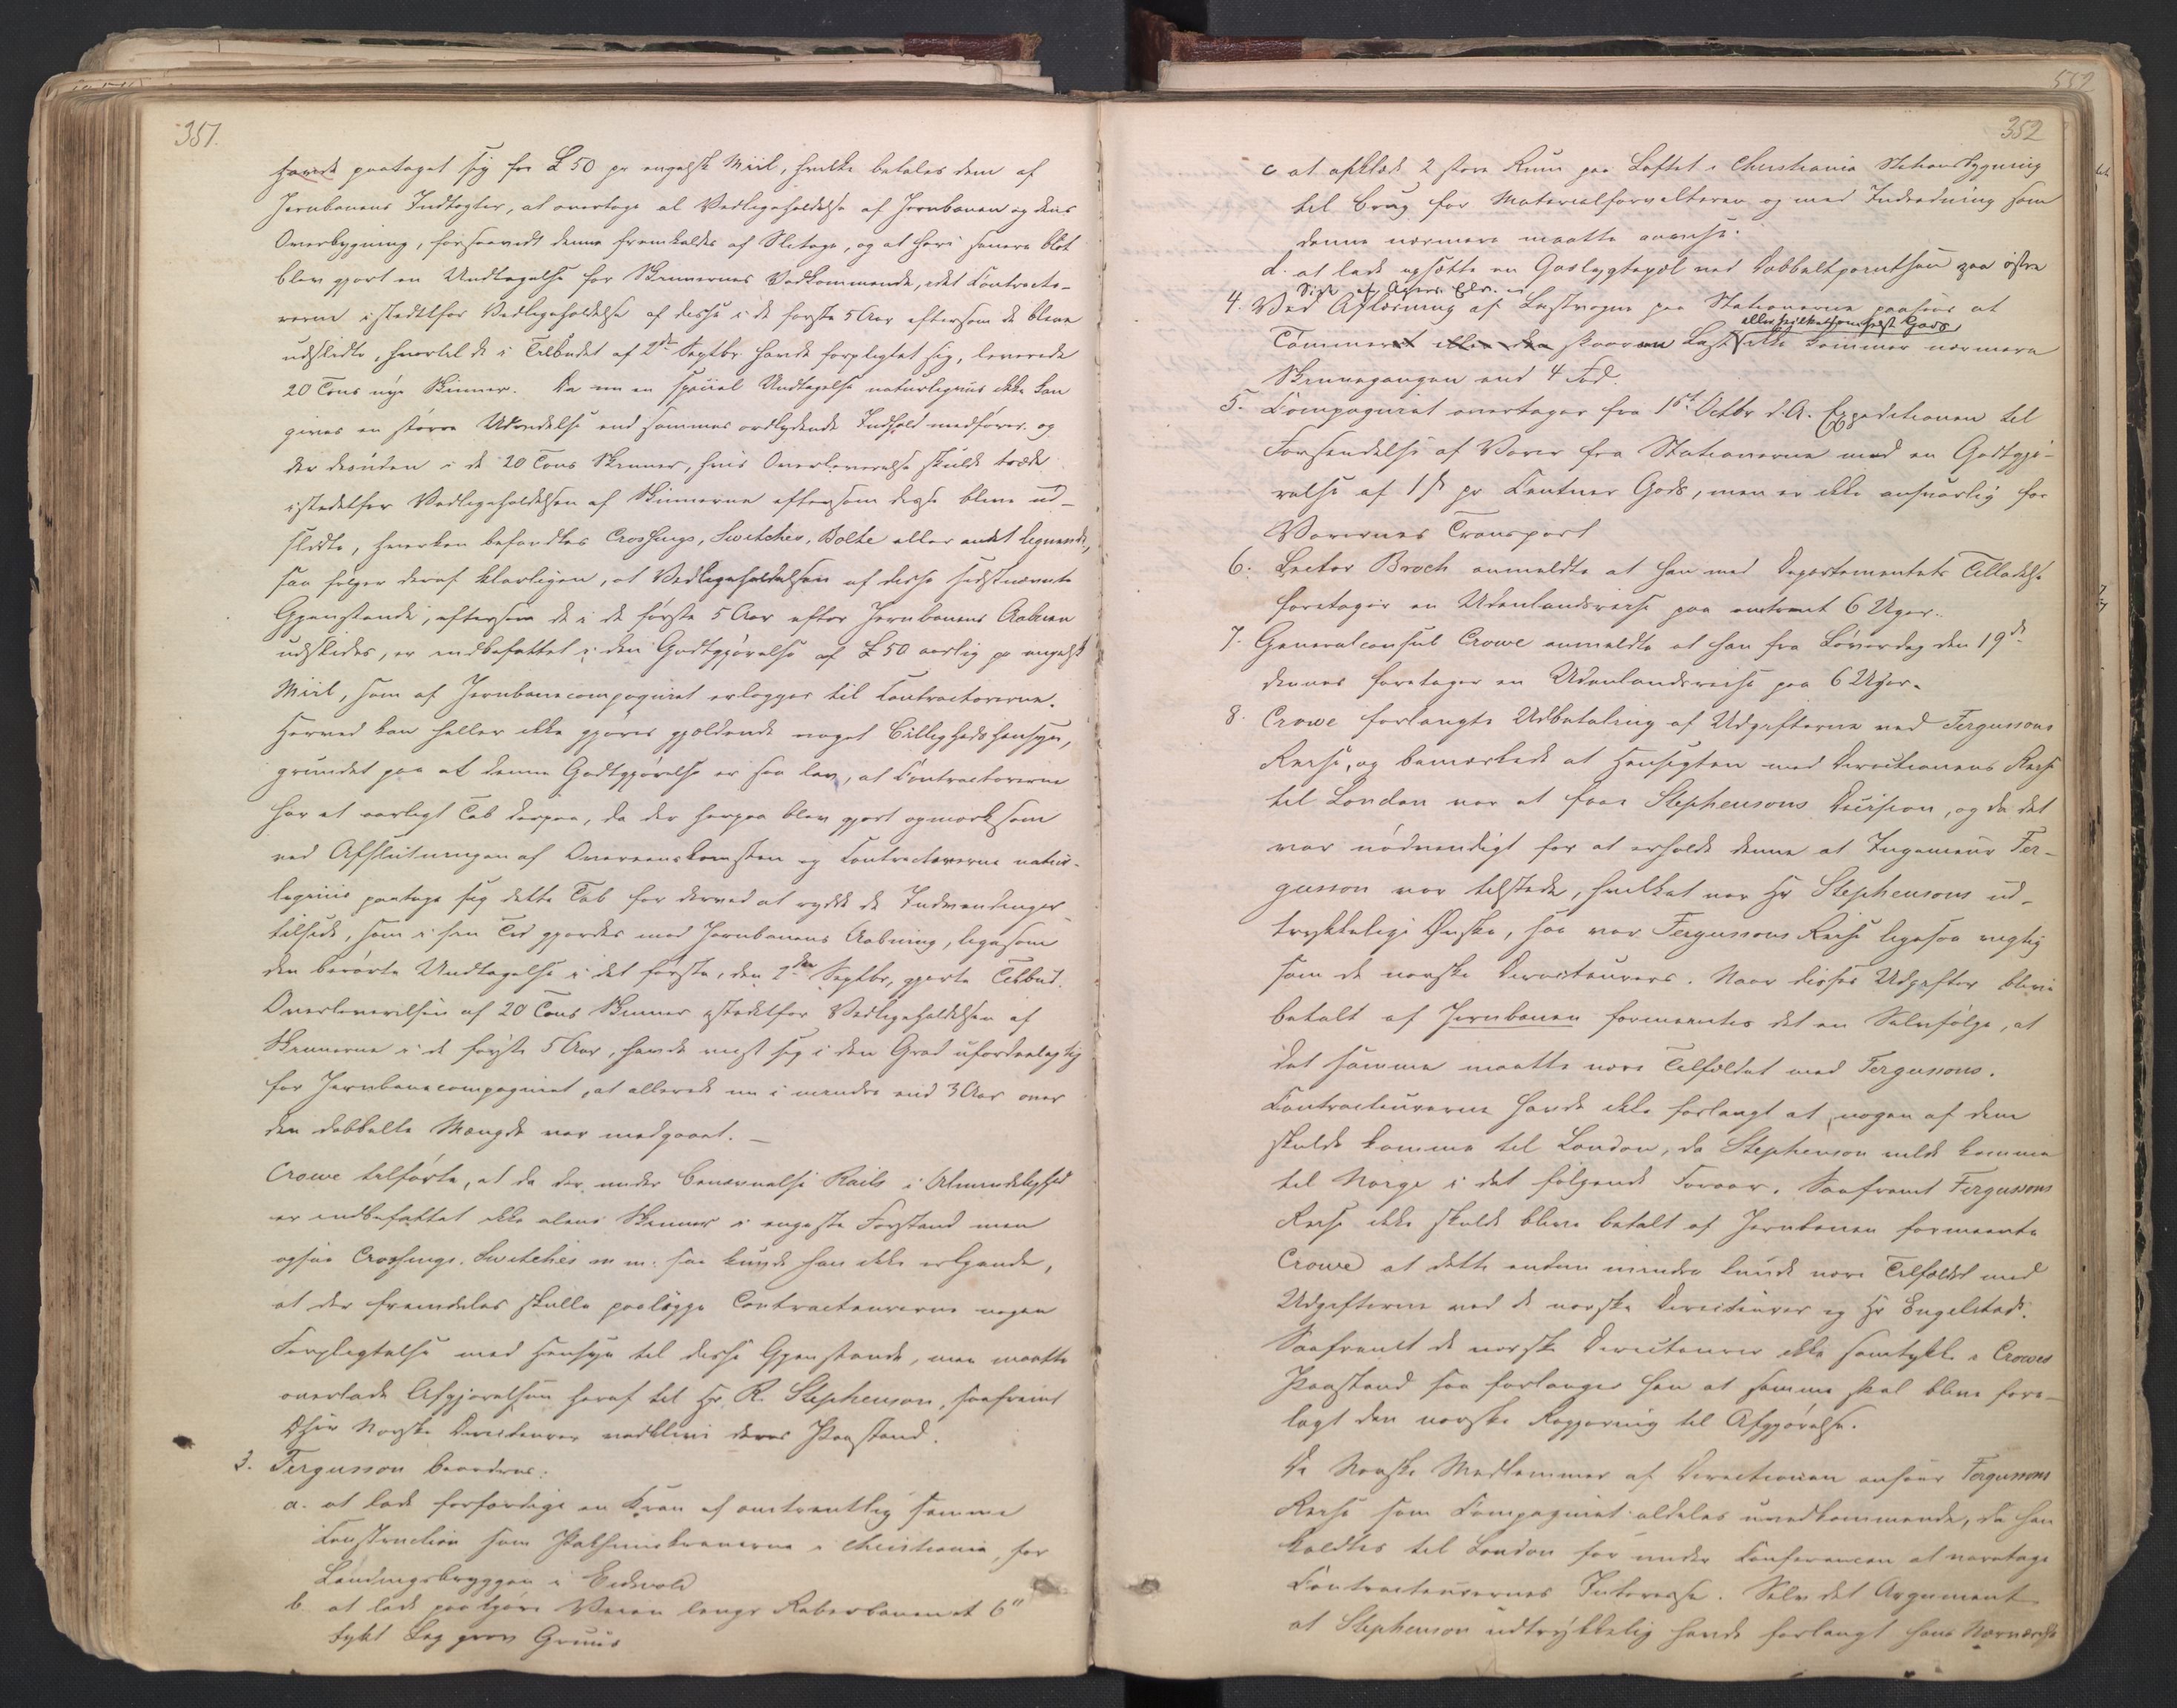 351.
havde paataget sig for £ 50 pr engelsk Miil, hvilke betales dem af
Jernbanens Indtægter, at overtage al Vedligeholdelse af Jernbanen og dens
Overbygning, forsaavidt denne fremkaldes af Slitage, og at heri senere blot
blev gjort en Undtagelse for Skinnernes Vedkommende, idet Contracto-
rerne istedetfor Vedligeholdelse af disse i de første 5 Aar eftersom de bleve
udslidte, hvortil de i Tilbudet af 2den Septbr. havde forpligtet sig, leverede
20 Tons nye Skinner. Da nu en speciel Undtagelse naturligviis ikke kan
gives en større Udvidelse end sammes ordlydende Indhold medfører og
der desuden i de 20 Tons Skinner, hvis Overleverelse skulde træde
istedetfor Vedligeholdelsen af Skinnerne eftersom disse bleve ud-
slidte, hverken befandtes Crossings, Switches, Bolte eller andet lignende,
saa følger deraf klarligen, at Vedligeholdelsen af disse sidstnævnte
Gjenstande, eftersom de i de første 5 Aar efter Jernbanens Aabnen
udslides, er indbefattet i den Godtgjørelse af £ 50 aarlig pr engelsk
Miil, som af Jernbanecompagniet erlægges til Contractorerne.
Herved kan heller ikke gjøres gjældende noget Billighedshensyn,
grundet paa at denne Godtgjørelse er saa lav, at Contractorerne
har et aarligt Tab derpaa, da der herpaa blev gjort opmærksom
ved Afslutningen af Overeenskomsten og Contractorerne natur-
ligviis paatoge sig dette Tab for derved at rydde de Indvendinger
tilside, som i sin Tid gjordes mod Jernbanens Aabning, ligesom
den berørte Undtagelse i det første, den 2den Septbr, gjorte Tilbud.
Overleverelsen af 20 Tons Skinner istedetfor Vedligeholdelsen af
Skinnerne i de første 5 Aar, havde viist sig i den Grad ufordeelagtig
for Jernbanecompagniet, at allerede nu i mindre end 3 Aar over
den dobbelte Mængde var medgaaet. —
Crowe tilførte, at da der under Benævnelse Rails i Almindelighed
er indbefattet ikke alene Skinner i engeste Forstand men
ogsaa Crossings. Switches m m. saa kunde han ikke erkjende,
at der fremdeles skulle paaligge Contracteurerne nogen
Forpligtelse med Hensyn til disse Gjenstande, men maatte
overlade Afgjørelsen heraf til Hr. R. Stephenson, saafremt
Norske Directeurer vedblive deres Paastand.
3. Fergusson beordres:
a. at lade forfærdige en Kran af omtrentlig samme
Construction som Pakhuuskranerne i Christiania, for
Landingsbryggen i Eidsvold
b. at lade paakjøre Veien langs Raberbanen et 6"
tykt Lag grov Gruus
352
c at afklæde 2 store Rum paa Loftet i Christiania Stationsbygning
til Brug for Materialforvalteren og med Indredning som
denne nærmere maatte anvise.
d. at lade opsætte en Gaslygtepæl ved Dobbeltporten paa østre
Side af Agers Elv.
4. Ved Aflæsning af Lastvogne paa Stationerne paasees at
eller hvilketsomhelst Gods
Tømmer skaaren Last ikke kommer nærmere
Skinnegangen end 4 Fod.
5. Compagniet overtager fra 1ste Octbr d. A. Expeditionen til
Forsendelse af Varer fra Stationerne mod en Godtgjø-
relse af 1 ß pr Centner Gods, men er ikke ansvarlig for
Varernes Transport
6. Lector Broch anmeldte at han med Departementets Tilladelse
foretager en Udenlandsreise paa omtrent 6 Uger.
7. Generalconsul Crowe anmeldte at han fra Løverdag den 19de
dennes foretager en Udenlandsreise paa 6 Uger.
8. Crowe forlangte Udbetaling af Udgifterne ved Fergussons
Reise, og bemærkede at Hensigten med Directionens Reise
til London var at faae Stephensons Decision, og da det
var nødvendigt for at erholde denne at Ingenieur Fer-
gusson var tilstede, hvilket var Hr Stephensons ud-
trykkelige Ønske, saa var Fergussons Reise ligesaa vigtig
som de norske Directeurers. Naar disses Udgifter bleve
betalt af Jernbanen formeentes det en Selvfølge, at
det samme maatte være Tilfældet med Fergussons.
Contracteurerne havde ikke forlangt at nogen af dem
skulde komme til London, da Stephenson vilde komme
til Norge i det følgende Foraar. Saafremt Fergussons
Reise ikke skulde blive betalt af Jernbanen formeente
Crowe at dette endnu mindre kunde være Tilfældet med
Udgifterne ved de norske Directeurer og Hr Engelstads.
Saafremt de norske Directeurer ikke samtykke i Crowes
Paastand saa forlanger han at samme skal blive fore-
lagt den norske Regjering til Afgjørelse.
De Norske Medlemmer af Directionen ansaae Fergussons
Reise som Compagniet aldeles uvedkommende, da han
kaldtes til London for under Conferencen at varetage
Contracteurernes Interesse. Selv det Argument
at Stephenson udtrykkelig havde forlangt hans Nærværelse